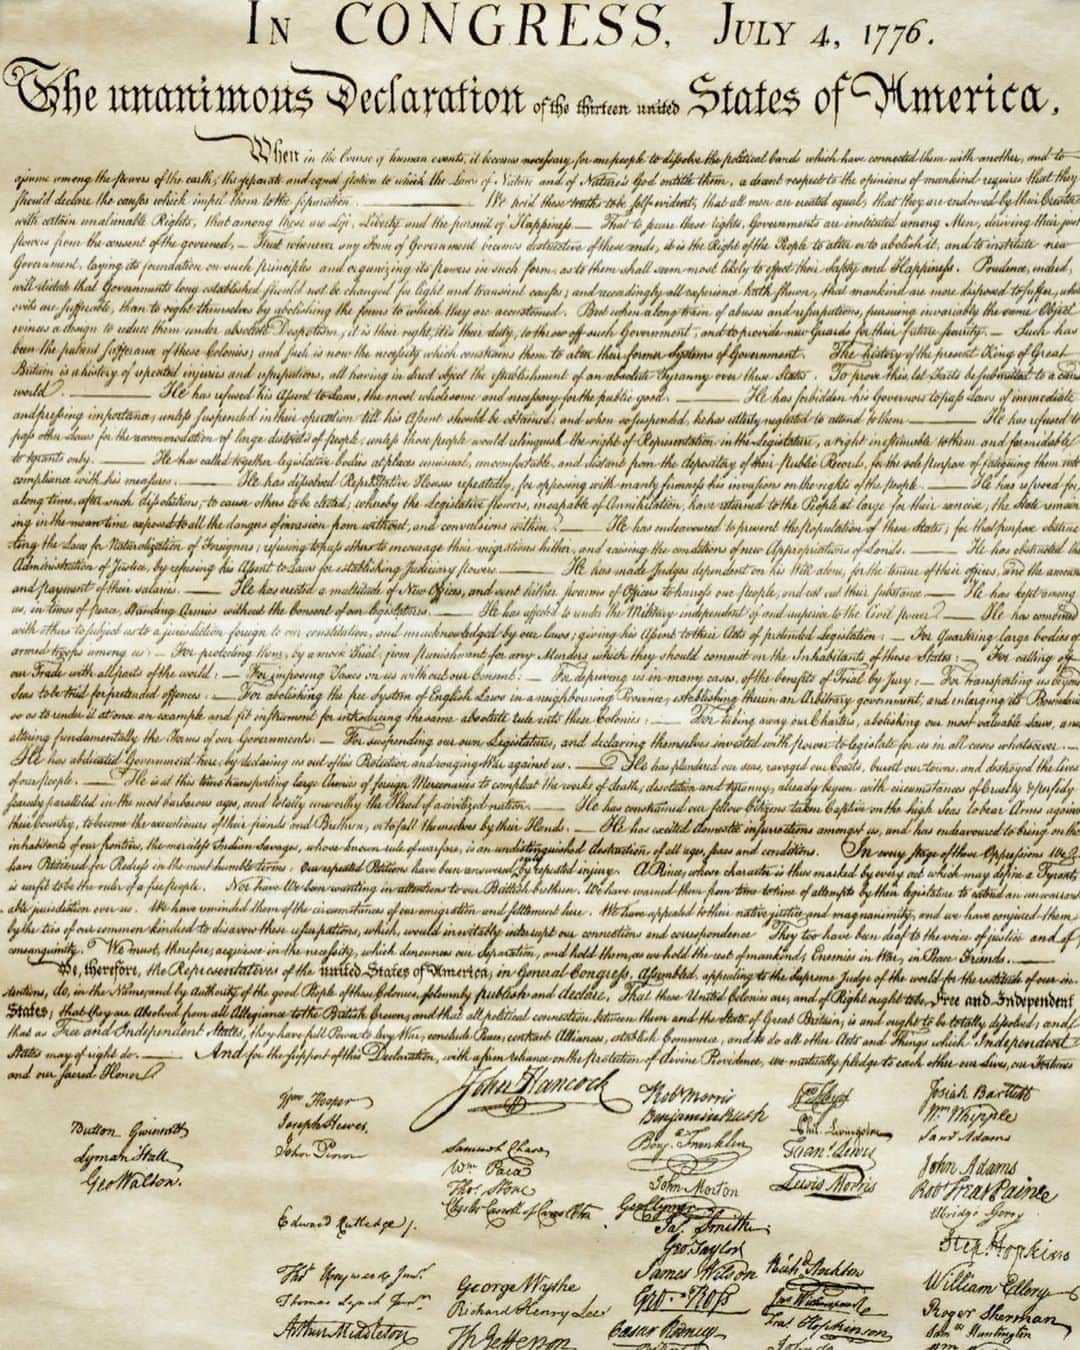 IN CONGRESS, JULY 4, 1776.
The unanimous Declaration of the thirteen united States of America,
When in the Course of human events, it becomes necessary for one people to dissolve the political bands which have connected them with another, and to
assume among the powers of the earth, the separate and equal station to which the Laws of Nature and of Nature's God entitle them, a decent respect to the opinions of mankind requires that they
should declare the causes which impel them to the separation. We hold these truths to be self-evident, that all men are created equal, that they are endowed by their Creator
with certain unalienable Rights, that among these are Life, Liberty and the pursuit of Happiness.— That to secure these rights, Governments are instituted among Men, deriving their just
powers from the consent of the governed,— That whenever any Form of Government becomes destructive of these ends, it is the Right of the People to alter or to abolish it, and to institute new
Government, laying its foundation on such principles and organizing its powers in such form, as to them shall seem most likely to effect their Safety and Happiness. Prudence, indeed,
will dictate that Governments long established should not be changed for light and transient causes; and accordingly all experience hath shewn, that mankind are more disposed to suffer, while
evils are sufferable, than to right themselves by abolishing the forms to which they are accustomed. But when a long train of abuses and usurpations, pursuing invariably the same Object
evinces a design to reduce them under absolute Despotism, it is their right, it is their duty, to throw off such Government, and to provide new Guards for their future security.— Such has
been the patient sufferance of these Colonies; and such is now the necessity which constrains them to alter their former Systems of Government. The history of the present King of Great
Britain is a history of repeated injuries and usurpations, all having in direct object the establishment of an absolute Tyranny over these States. To prove this, let Facts be submitted to a candid
world. He has refused his Assent to Laws, the most wholesome and necessary for the public good. He has forbidden his Governors to pass Laws of immediate
and pressing importance, unless suspended in their operation till his Assent should be obtained; and when so suspended, he has utterly neglected to attend to them. He has refused to
pass other Laws for the accommodation of large districts of people, unless those people would relinquish the right of Representation in the Legislature, a right inestimable to them and formidable
to tyrants only. He has called together legislative bodies at places unusual, uncomfortable, and distant from the depository of their public Records, for the sole purpose of fatiguing them into
compliance with his measures. He has dissolved Representative Houses repeatedly, for opposing with manly firmness his invasions on the rights of the people. He has refused for
a long time, after such dissolutions, to cause others to be elected; whereby the Legislative powers, incapable of Annihilation, have returned to the People at large for their exercise; the State remain
ing in the mean time exposed to all the dangers of invasion from without, and convulsions within. He has endeavoured to prevent the population of these States; for that purpose obstruc
ting the Laws for Naturalization of Foreigners; refusing to pass others to encourage their migrations hither, and raising the conditions of new Appropriations of Lands. He has obstructed the
Administration of Justice, by refusing his Assent to Laws for establishing Judiciary powers. He has made Judges dependent on his Will alone, for the tenure of their offices, and the amount
and payment of their salaries. He has erected a multitude of New Offices, and sent hither swarms of Officers to harrass our people, and eat out their substance. He has kept among
us, in times of peace, Standing Armies without the Consent of our legislatures. He has affected to render the Military independent of and superior to the Civil power. He has combined
with others to subject us to a jurisdiction foreign to our constitution, and unacknowledged by our laws; giving his Assent to their Acts of pretended Legislation: — For Quartering large bodies of
armed troops among us: — For protecting them, by a mock Trial, from punishment for any Murders which they should commit on the Inhabitants of these States: — For cutting off
our Trade with all parts of the world: — For imposing Taxes on us without our Consent: — For depriving us in many cases, of the benefits of Trial by Jury: — For transporting us beyond
Seas to be tried for pretended offences: — For abolishing the free System of English Laws in a neighbouring Province, establishing therein an Arbitrary government, and enlarging its Boundaries
so as to render it at once an example and fit instrument for introducing the same absolute rule into these Colonies: — For taking away our Charters, abolishing our most valuable Laws, and
altering fundamentally the Forms of our Governments: — For suspending our own Legislatures, and declaring themselves invested with power to legislate for us in all cases whatsoever.—
He has abdicated Government here, by declaring us out of his Protection and waging War against us. He has plundered our seas, ravaged our Coasts, burnt our towns, and destroyed the lives
of our people. He is at this time transporting large Armies of foreign Mercenaries to compleat the works of death, desolation and tyranny, already begun with circumstances of Cruelty & perfidy
scarcely paralleled in the most barbarous ages, and totally unworthy the Head of a civilized nation. He has constrained our fellow Citizens taken Captive on the high Seas to bear Arms against
their Country, to become the executioners of their friends and Brethren, or to fall themselves by their Hands. He has excited domestic insurrections amongst us, and has endeavoured to bring on the
inhabitants of our frontiers, the merciless Indian Savages, whose known rule of warfare, is an undistinguished destruction of all ages, sexes and conditions. In every stage of these Oppressions We
have Petitioned for Redress in the most humble terms: Our repeated Petitions have been answered only by repeated injury. A Prince, whose character is thus marked by every act which may define a Tyrant,
is unfit to be the ruler of a free people. Nor have We been wanting in attentions to our Brittish brethren. We have warned them from time to time of attempts by their legislature to extend an unwarrant
able jurisdiction over us. We have reminded them of the circumstances of our emigration and settlement here. We have appealed to their native justice and magnanimity, and we have conjured them
by the ties of our common kindred to disavow these usurpations, which, would inevitably interrupt our connections and correspondence. They too have been deaf to the voice of justice and of
consanguinity. We must, therefore, acquiesce in the necessity, which denounces our Separation, and hold them, as we hold the rest of mankind, Enemies in War, in Peace Friends.
We, therefore, the Representatives of the united States of America, in General Congress, Assembled, appealing to the Supreme Judge of the world for the rectitude of our in
tentions, do, in the Name, and by Authority of the good People of these Colonies, solemnly publish and declare, That these United Colonies are, and of Right ought to be Free and Independent
States; that they are Absolved from all Allegiance to the British Crown, and that all political connection between them and the State of Great Britain, is and ought to be totally dissolved; and
that as Free and Independent States, they have full Power to levy War, conclude Peace, contract Alliances, establish Commerce, and to do all other Acts and Things which Independent
States may of right do. And for the support of this Declaration, with a firm reliance on the Protection of divine Providence, we mutually pledge to each other our Lives, our Fortunes
and our sacred Honor.
John Hancock
Button Gwinnett
Lyman Hall
Geo Walton.
Wm Hooper
Joseph Hewes,
John Penn
Edward Rutledge /.
Thos Heyward Junr.
Thomas Lynch Junr.
Arthur Middleton
Samuel Chase
Wm Paca
Thos Stone
Charles Carroll of Carrollton
George Wythe
Richard Henry Lee
Th Jefferson
Robt Morris
Benjamin Rush
Benj. Franklin
John Morton
Geo Clymer
Jas. Smith
Geo. Taylor
James Wilson
Geo. Ross
Caesar Rodney
Wm Floyd
Phil. Livingston
Frans. Lewis
Lewis Morris
Richd. Stockton
Jno Witherspoon
Fras. Hopkinson
Josiah Bartlett
Wm Whipple
Saml Adams
John Adams
Robt Treat Paine
Elbridge Gerry
Step. Hopkins
William Ellery
Roger Sherman
Sam Huntington